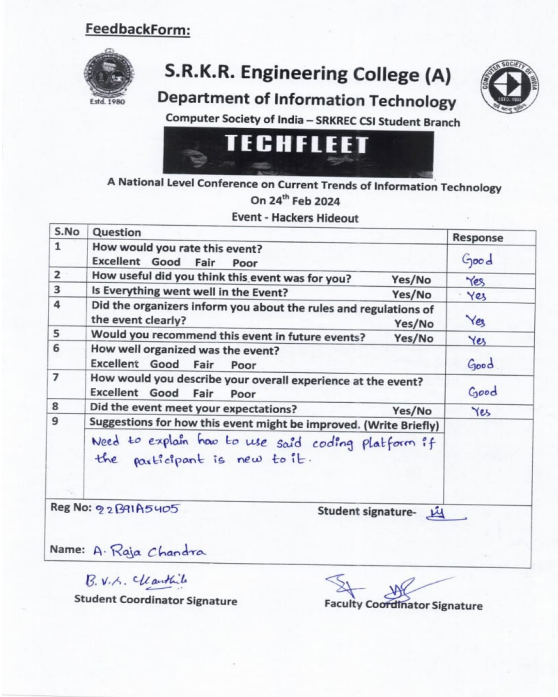 FeedbackForm:
Estd. 1980
S.R.K.R. Engineering College (A)
Department of Information Technology
Computer Society of India – SRKREC CSI Student Branch
COMPUTER SOCIETY OF INDIA
TECHFLEET
A National Level Conference on Current Trends of Information Technology
On 24th Feb 2024
Event - Hackers Hideout
S.No Question Response
1 How would you rate this event?
Excellent Good Fair Poor Good
2 How useful did you think this event was for you? Yes/No Yes
3 Is Everything went well in the Event? Yes/No Yes
4 Did the organizers inform you about the rules and regulations of
the event clearly? Yes/No Yes
5 Would you recommend this event in future events? Yes/No Yes
6 How well organized was the event?
Excellent Good Fair Poor Good
7 How would you describe your overall experience at the event?
Excellent Good Fair Poor Good
8 Did the event meet your expectations? Yes/No Yes
9 Suggestions for how this event might be improved. (Write Briefly)
Need to explain how to use said coding platform if
the participant is new to it.
Reg No: 22B91A5405 Student signature-
Name: A. Raja Chandra
B.V.S.
Student Coordinator Signature Faculty Coordinator Signature